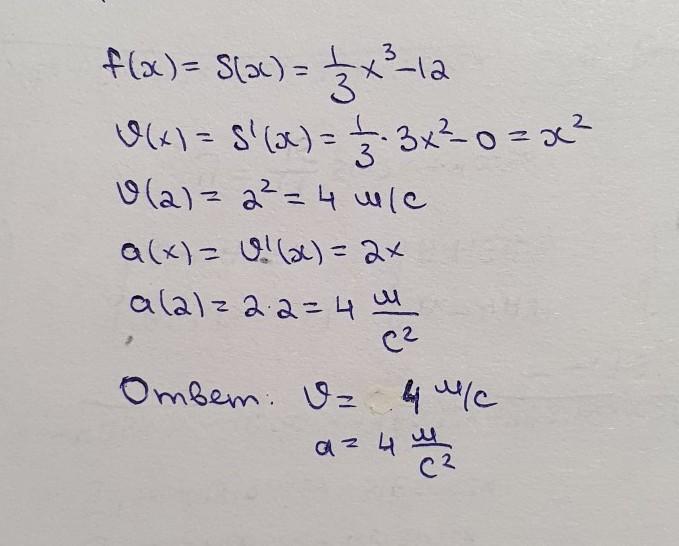 f(x) = S(x) = 1/3 x³ - 12
υ(x) = S'(x) = 1/3 · 3x² - 0 = x²
υ(2) = 2² = 4 м/с
a(x) = υ'(x) = 2x
a(2) = 2·2 = 4 м/с²
Ответ: υ = 4 м/с
a = 4 м/с²